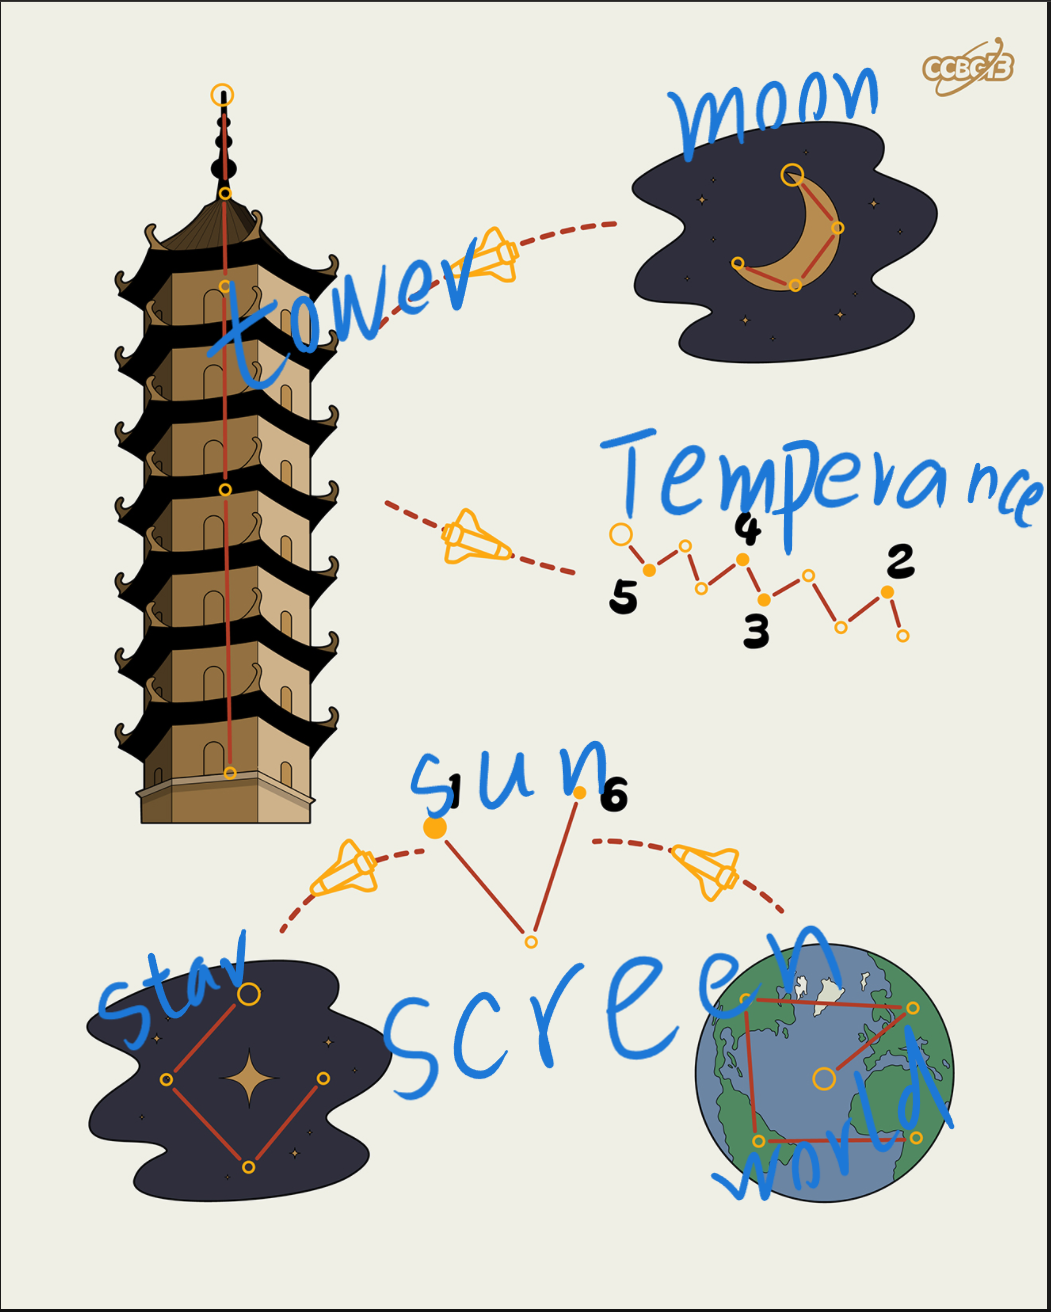 CCBC13
moon
tower
Temperance
4
2
5
3
sun
1
6
star
screen
world